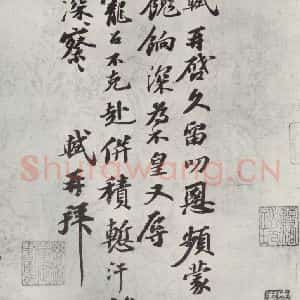 軾再啓久留叨恩頻蒙
餽餉深為不皇又辱
寵召不克赴併積慙汗
深察
軾再拜
Shufawang.CN